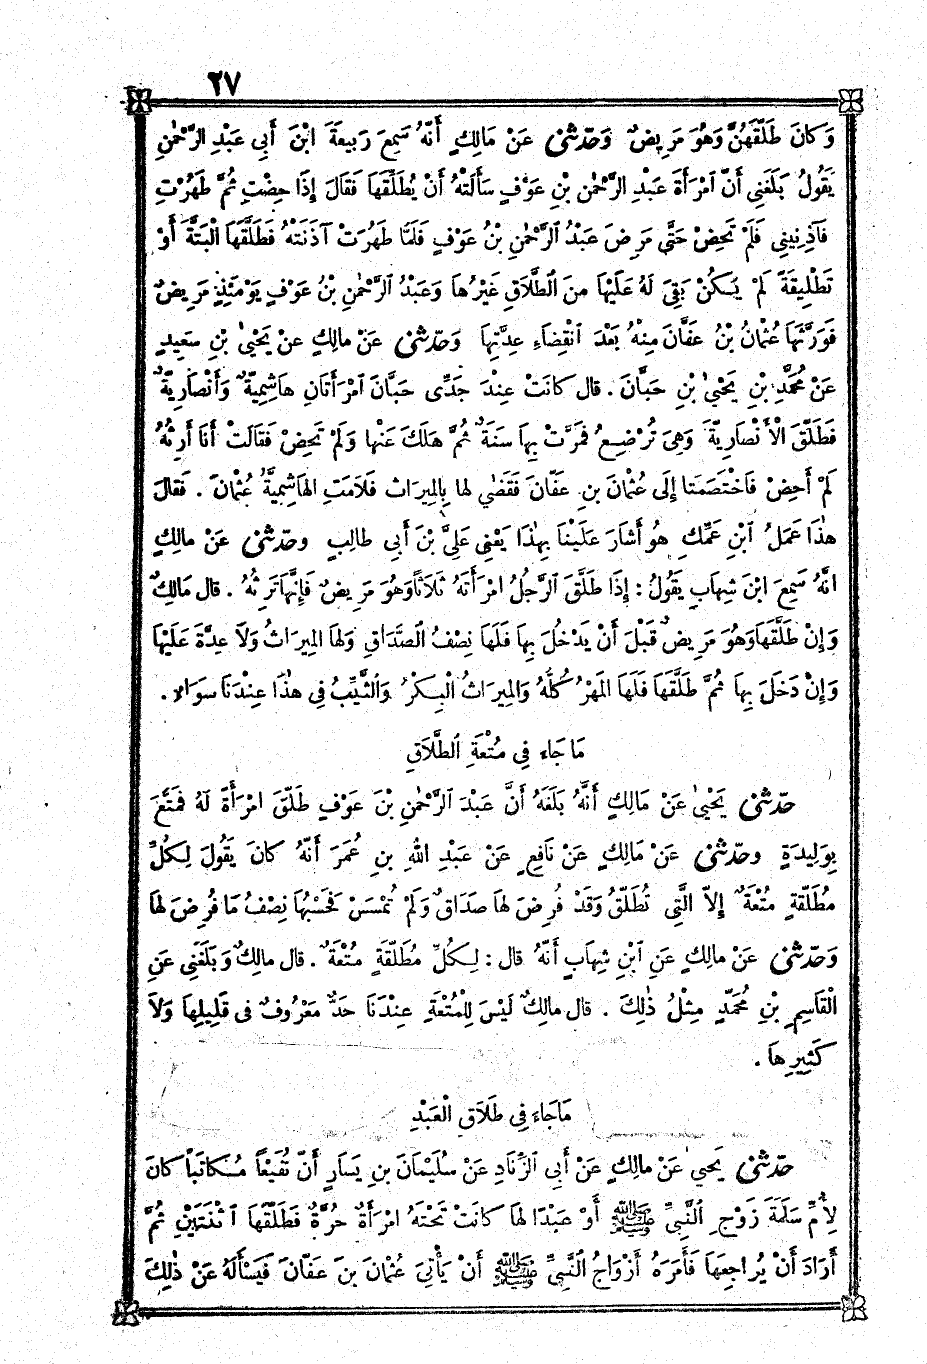 ٢٧
وَكَانَ طَلَّقَهُنَّ وَهُوَ مَرِيضٌ وَحَدَّثَنِي عَنْ مَالِكٍ أَنَّهُ سَمِعَ رَبِيعَةَ ابْنَ أَبِي عَبْدِ الرَّحْمٰنِ
يَقُولُ بَلَغَنِي أَنَّ امْرَأَةَ عَبْدِ الرَّحْمٰنِ بْنِ عَوْفٍ سَأَلَتْهُ أَنْ يُطَلِّقَهَا فَقَالَ إِذَا حِضْتِ ثُمَّ طَهُرْتِ
فَآذِنِينِي فَلَمْ تَحِضْ حَتَّى مَرِضَ عَبْدُ الرَّحْمٰنِ بْنُ عَوْفٍ فَلَمَّا طَهُرَتْ آذَنَتْهُ فَطَلَّقَهَا الْبَتَّةَ أَوْ
تَطْلِيقَةً لَمْ يَكُنْ بَقِيَ لَهُ عَلَيْهَا مِنَ الطَّلَاقِ غَيْرُهَا وَعَبْدُ الرَّحْمٰنِ بْنُ عَوْفٍ يَوْمَئِذٍ مَرِيضٌ
فَوَرَّثَهَا عُثْمَانُ بْنُ عَفَّانَ مِنْهُ بَعْدَ انْقِضَاءِ عِدَّتِهَا وَحَدَّثَنِي عَنْ مَالِكٍ عَنْ يَحْيَىٰ بْنِ سَعِيدٍ
عَنْ مُحَمَّدِ بْنِ يَحْيَىٰ بْنِ حَبَّانَ . قال كَانَتْ عِنْدَ جَدِّي حَبَّانَ امْرَأَتَانِ هَاشِمِيَّةٌ وَأَنْصَارِيَّةٌ
فَطَلَّقَ الْأَنْصَارِيَّةَ وَهِيَ تُرْضِعُ فَمَرَّتْ بِهَا سَنَةٌ ثُمَّ هَلَكَ عَنْهَا وَلَمْ تَحِضْ فَقَالَتْ أَنَا أَرِثُهُ
لَمْ أَحِضْ فَاخْتَصَمَتَا إِلَى عُثْمَانَ بنِ عَفَّانَ فَقَضَى لها بِالمِيرَاثِ فَلَامَتِ الهَاشِمِيَّةُ عُثْمَانَ . فَقَالَ
هٰذَا عَمَلُ ابْنِ عَمِّكِ هُوَ أَشَارَ عَلَيْنَا بِهٰذَا يَعْنِي عَلِيَّ بْنَ أَبِي طالِبٍ وحَدَّثَنِي عَنْ مالِكٍ
انَّهُ سَمِعَ ابْنَ شِهَابٍ يَقُولُ : إِذَا طَلَّقَ الرَّجُلُ امْرَأَتَهُ ثَلَاثًا وَهُوَ مَرِيضٌ فَإِنَّهَا تَرِثُهُ . قال مَالِكٌ
وَإِنْ طَلَّقَهَا وَهُوَ مَرِيضٌ قَبْلَ أَنْ يَدْخُلَ بِهَا فَلَهَا نِصْفُ الصَّدَاقِ وَلَهَا المِيرَاثُ وَلَا عِدَّةَ عَلَيْهَا
وَإِنْ دَخَلَ بِهَا ثُمَّ طَلَّقَهَا فَلَهَا المَهْرُ كُلُّهُ وَالمِيرَاثُ الْبِكْرُ وَالثَّيِّبُ فِي هٰذَا عِنْدَنَا سَوَاءٌ .
مَا جَاءَ فِي مُتْعَةِ الطَّلَاقِ
حَدَّثَنِي يَحْيَىٰ عَنْ مَالِكٍ أَنَّهُ بَلَغَهُ أَنَّ عَبْدَ الرَّحْمٰنِ بْنَ عَوْفٍ طَلَّقَ امْرَأَةً لَهُ فَمَتَّعَ
بِوَلِيدَةٍ وحَدَّثَنِي عَنْ مَالِكٍ عَنْ نَافِعٍ عَنْ عَبْدِ اللهِ بنِ عُمَرَ أَنَّهُ كانَ يَقُولُ لِكُلِّ
مُطَلَّقَةٍ مُتْعَةٌ إِلَّا الَّتِي تُطَلَّقُ وَقَدْ فُرِضَ لهَا صَدَاقٌ وَلَمْ تُمْسَسْ فَحَسْبُهَا نِصْفُ مَا فُرِضَ لهَا
وَحَدَّثَنِي عَنْ مالِكٍ عَنِ ابْنِ شِهَابٍ أَنَّهُ قال : لِكُلِّ مُطَلَّقَةٍ مُتْعَةٌ . قال مالِكٌ وَبَلَغَنِي عَنِ
الْقَاسِمِ بْنِ مُحَمَّدٍ مِثْلُ ذٰلِكَ . قال مالِكٌ لَيْسَ لِلْمُتْعَةِ عِنْدَنَا حَدٌّ مَعْرُوفٌ فِي قَلِيلِهَا وَلَا
كَثِيرِهَا .
مَا جَاءَ فِي طَلَاقِ الْعَبْدِ
حَدَّثَنِي يَحْيَىٰ عَنْ مالِكٍ عَنْ أَبِي الزِّنَادِ عَنْ سُلَيْمَانَ بنِ يَسَارٍ أَنَّ نُفَيْعًا مُكَاتَبًا كَانَ
لِأُمِّ سَلَمَةَ زَوْجِ النَّبِيِّ ﷺ أَوْ عَبْدًا لهَا كَانَتْ تَحْتَهُ امْرَأَةٌ حُرَّةٌ فَطَلَّقَهَا اثْنَتَيْنِ ثُمَّ
أَرَادَ أَنْ يُرَاجِعَهَا فَأَمَرَهُ أَزْوَاجُ النَّبِيِّ ﷺ أَنْ يَأْتِيَ عُثْمَانَ بنَ عَفَّانَ فَيَسْأَلَهُ عَنْ ذٰلِكَ